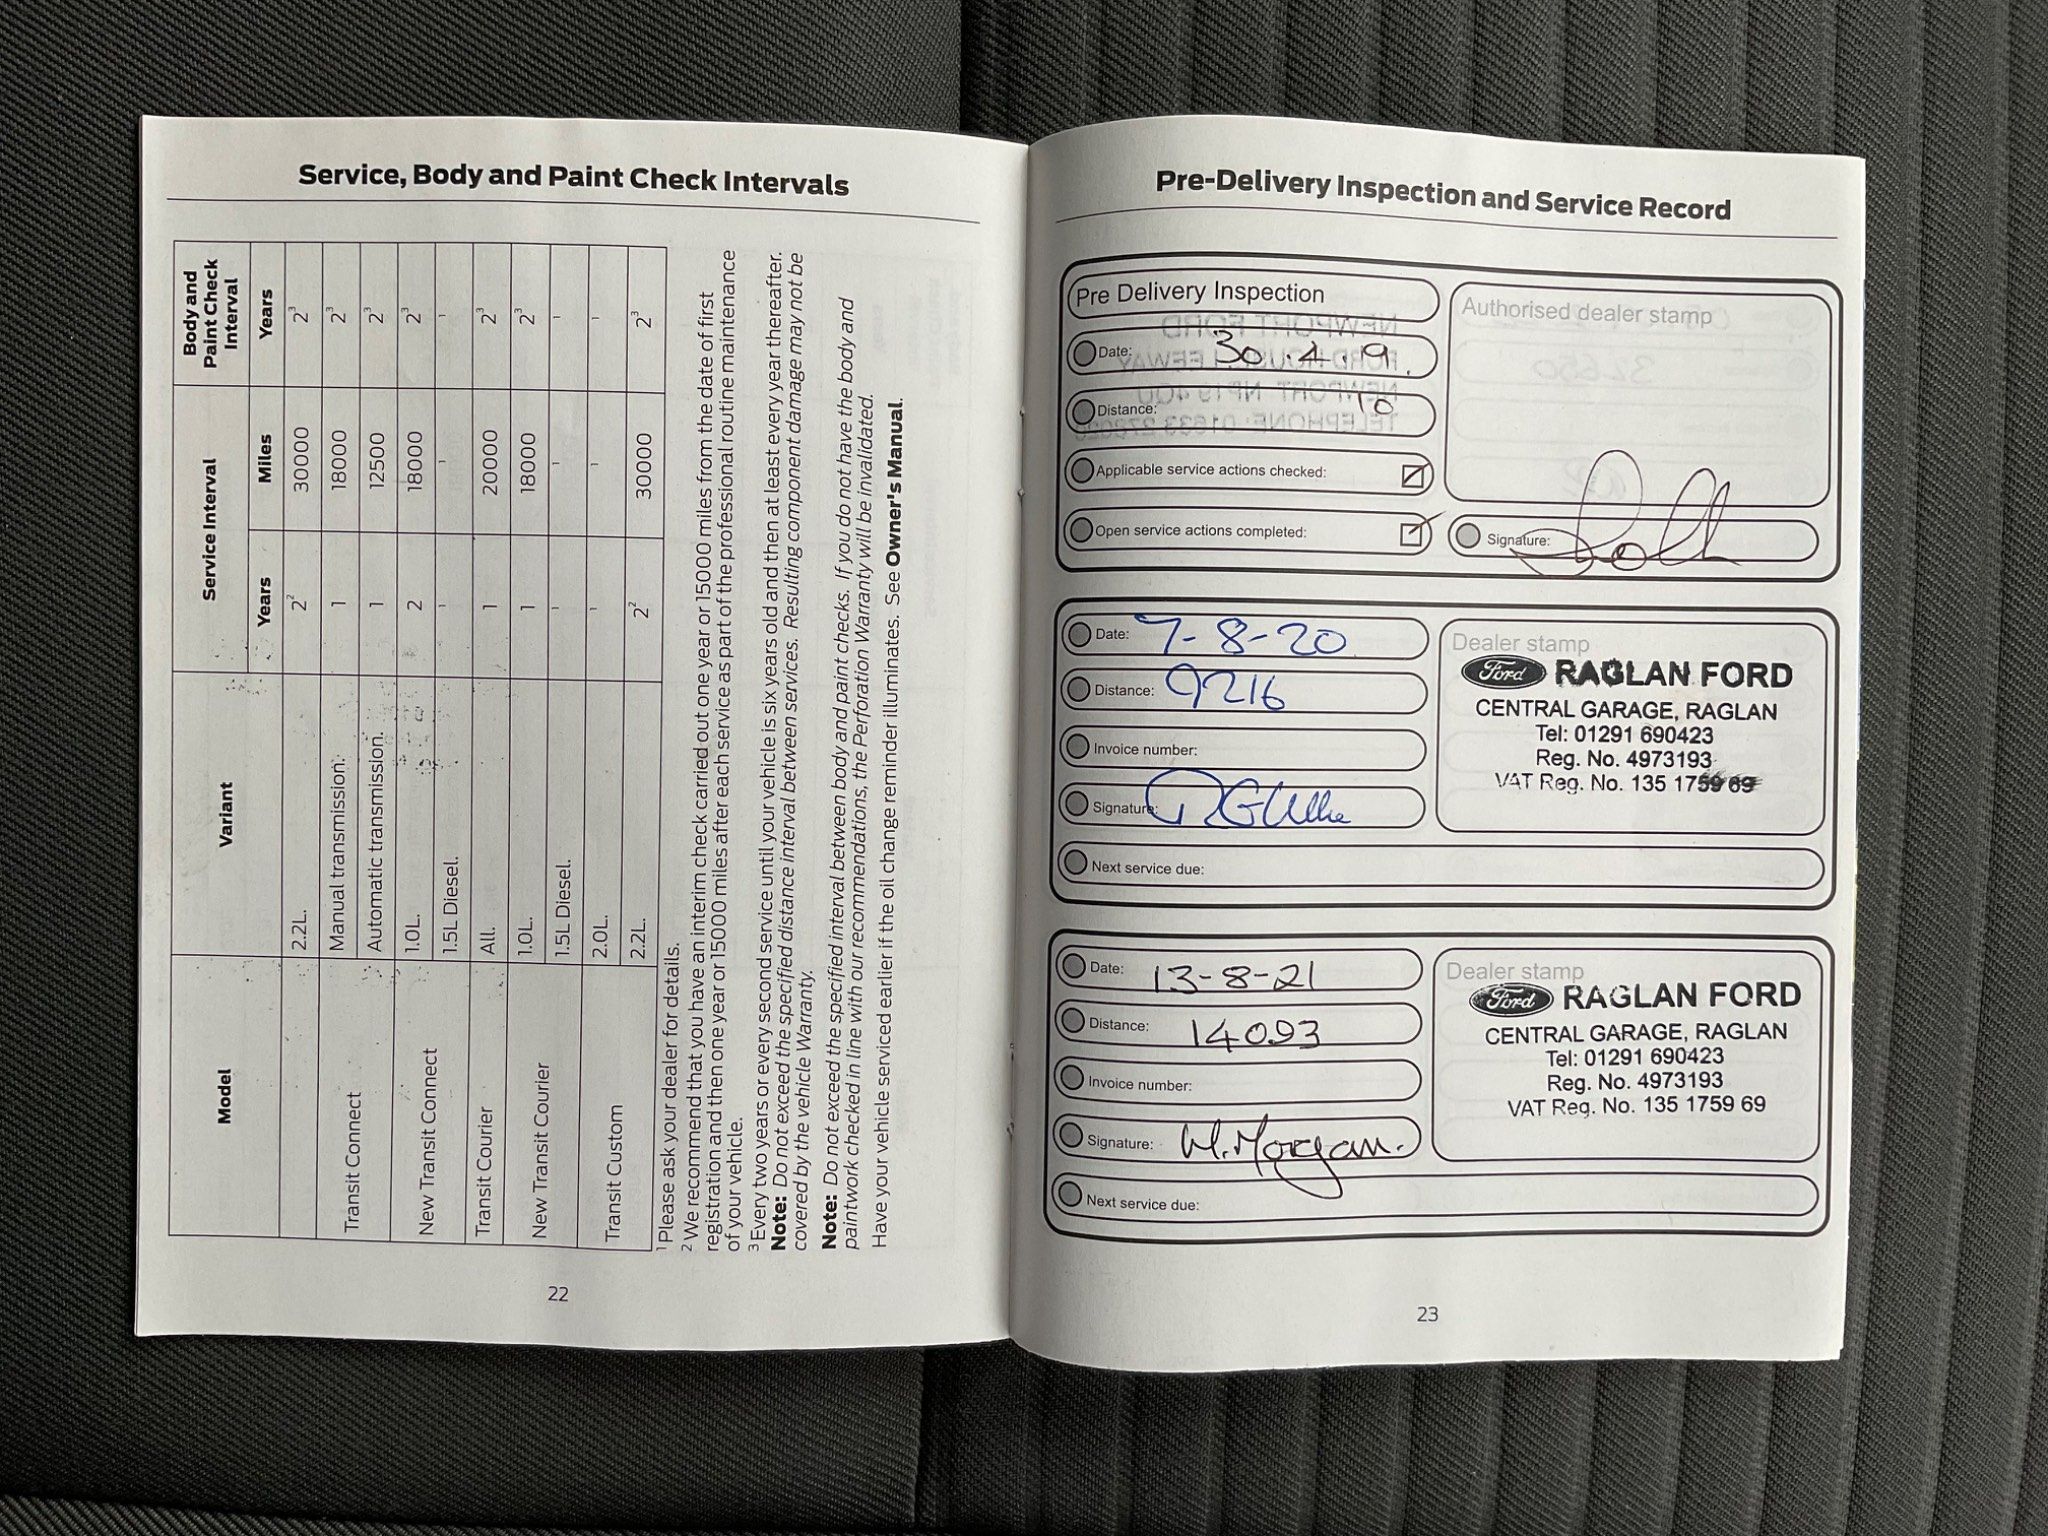 Service, Body and Paint Check Intervals
Model Variant Service Interval Body and Paint Check Interval
Years Miles Years
2.2L. 2² 30000 2³
Transit Connect Manual transmission. 1 18000 2³
Automatic transmission. 1 12500 2³
New Transit Connect 1.0L. 2 18000 2³
1.5L Diesel. ¹ ¹ ¹
Transit Courier All. 1 20000 2³
New Transit Courier 1.0L. 1 18000 2³
1.5L Diesel. ¹ ¹ ¹
Transit Custom 2.0L. ¹ ¹ ¹
2.2L. 2² 30000 2³
¹ Please ask your dealer for details.
² We recommend that you have an interim check carried out one year or 15000 miles from the date of first
registration and then one year or 15000 miles after each service as part of the professional routine maintenance
of your vehicle.
³ Every two years or every second service until your vehicle is six years old and then at least every year thereafter.
Note: Do not exceed the specified distance interval between services. Resulting component damage may not be
covered by the vehicle Warranty.
Note: Do not exceed the specified interval between body and paint checks. If you do not have the body and
paintwork checked in line with our recommendations, the Perforation Warranty will be invalidated.
Have your vehicle serviced earlier if the oil change reminder illuminates. See Owner's Manual.
22
Pre-Delivery Inspection and Service Record
Pre Delivery Inspection
Date: 30.4.9.
Distance: 10
Applicable service actions checked:
Open service actions completed:
Authorised dealer stamp
Signature:
Date: 7-8-20
Distance: 9216
Invoice number:
Signature:
Next service due:
Dealer stamp
Ford RAGLAN FORD
CENTRAL GARAGE, RAGLAN
Tel: 01291 690423
Reg. No. 4973193
VAT Reg. No. 135 1759 69
Date: 13-8-21
Distance: 14093
Invoice number:
Signature: W. Morgan.
Next service due:
Dealer stamp
Ford RAGLAN FORD
CENTRAL GARAGE, RAGLAN
Tel: 01291 690423
Reg. No. 4973193
VAT Reg. No. 135 1759 69
23